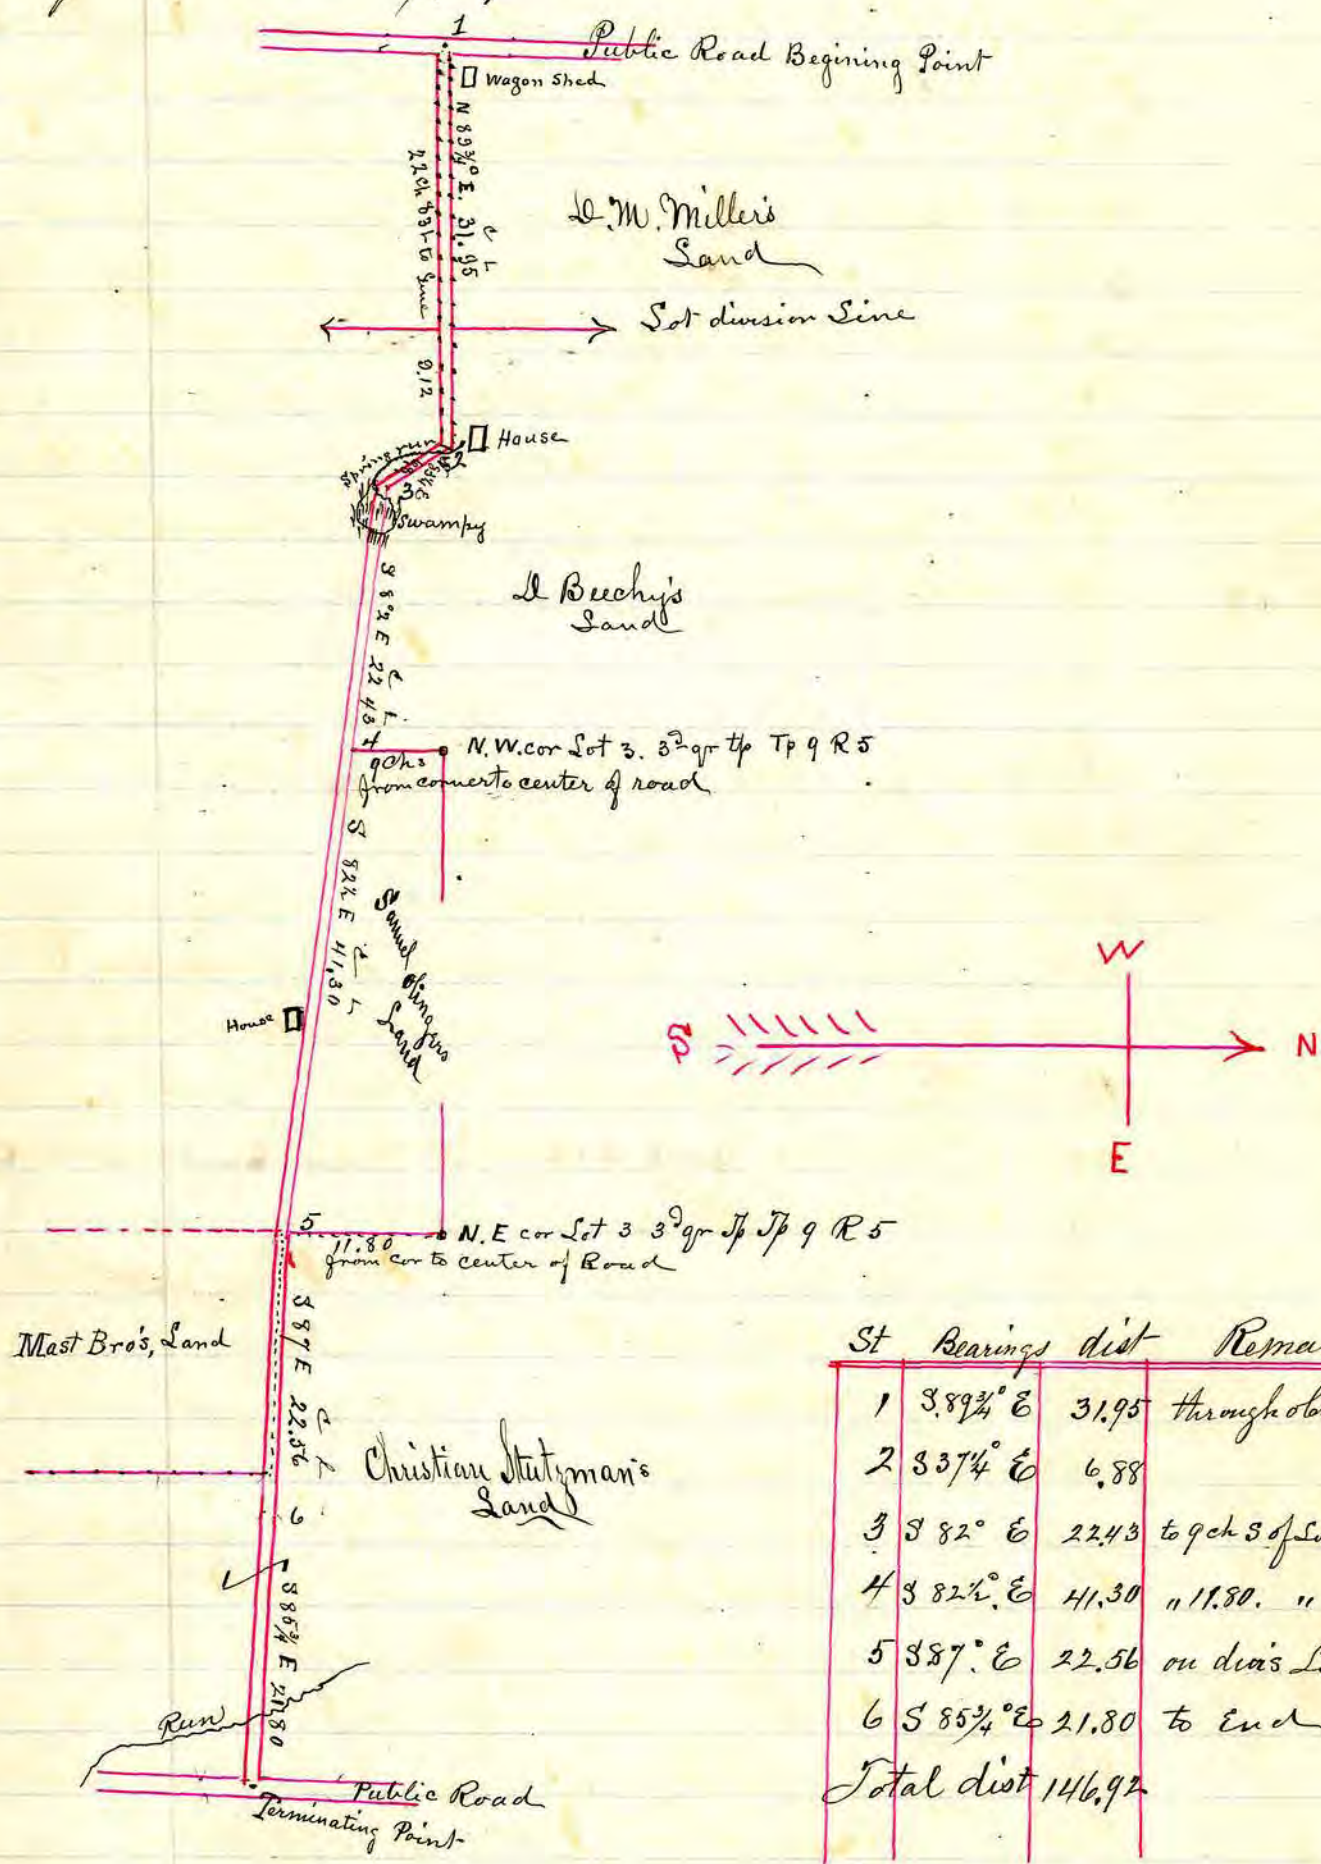 1
Public Road Begining Point
Wagon Shed
N 89¾° E. 31.95
C L
22 Ch 83 L to Line
D. M. Miller's
Land
Lot division Line
9.12
House
Spring run
2
3
Swampy
D Beechy's
Land
S 82° E 22 43
C L
4
N.W. cor Lot 3. 3d qr tp Tp 9 R 5
9 Chs
from corner to center of road
S 82½ E 41,30
C L
Samuel
Land
House
W
S
N
E
5
N. E cor Lot 3 3d qr Tp Tp 9 R 5
11.80
from cor to center of Road
Mast Bro's, Land
S 87 E 22.56
C L
Christian Stutzman's
Land
6
S 85¾ E 21.80
Run
Public Road
Terminating Point
St Bearings dist Rema
1 S. 89¾° E 31.95 through
2 S 37¼° E 6,88
3 S 82° E 22.43 to 9 ch S of
4 S 82½° E 41.30 " 11.80. "
5 S 87° E 22.56 on divis L
6 S 85¾° E 21.80 to End
Total dist 146.92